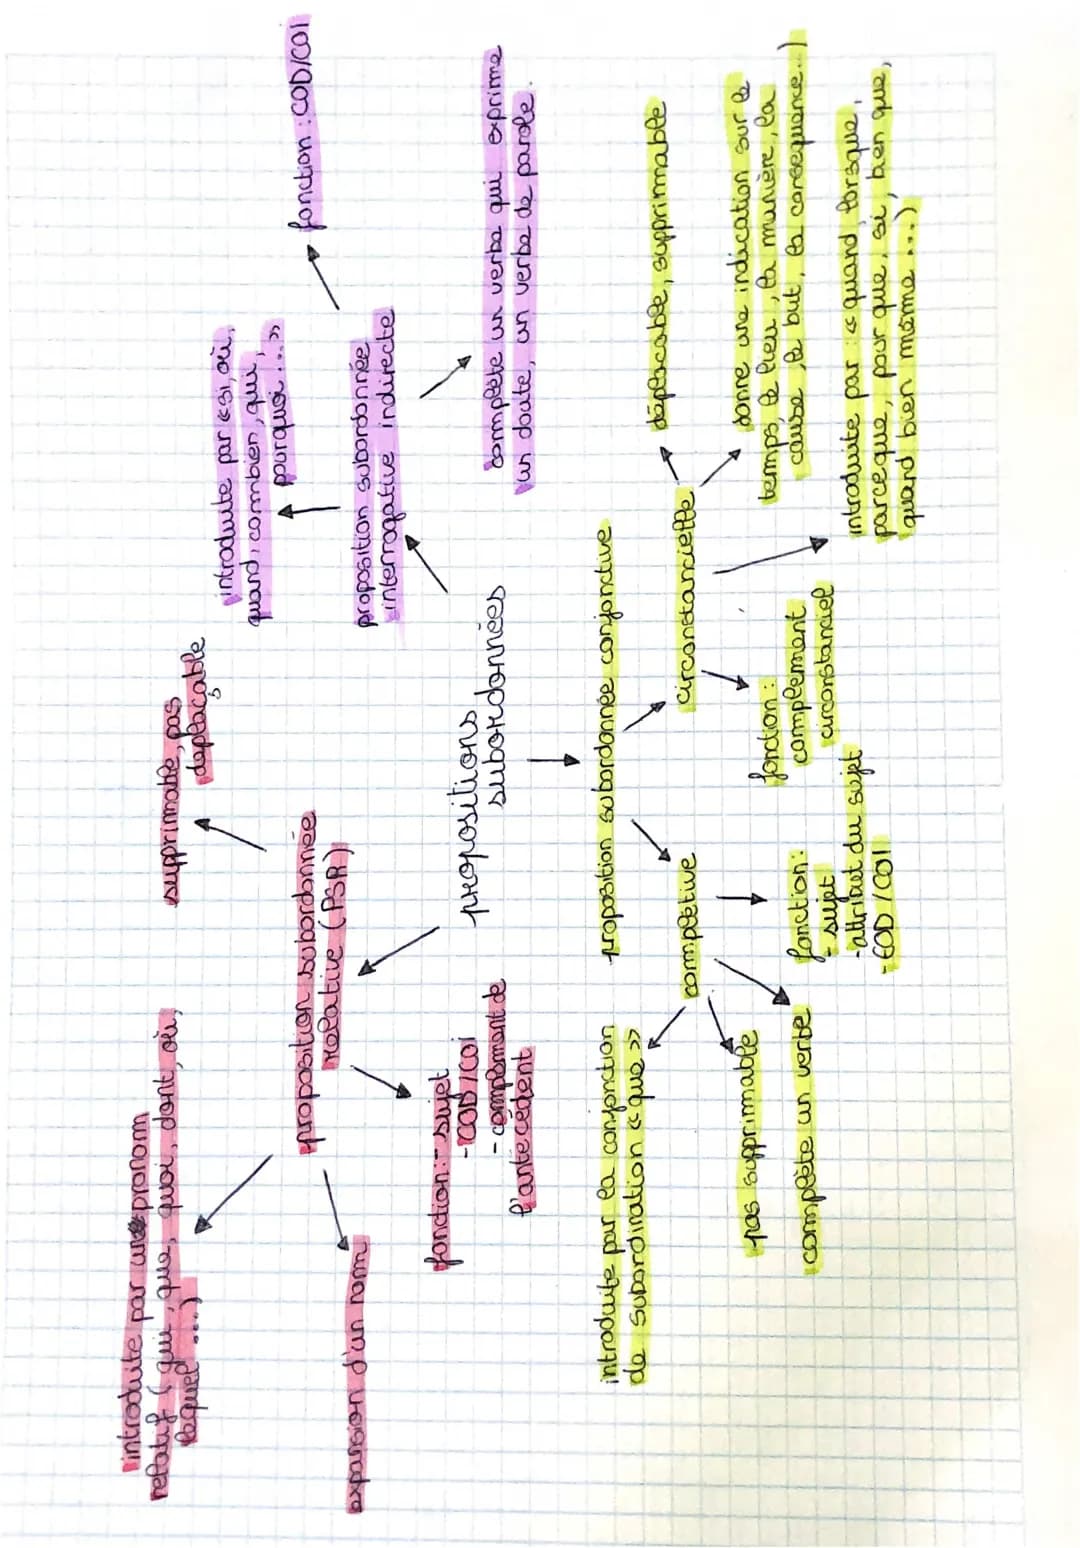 propositions
subordonnées
proposition subordonnée
relative (PSR)
introduite par un pronom
relatif (qui, que, quoi, dont, où,
lequel ...)
supprimable, pas
déplaçable
expansion d'un nom
fonction : - sujet
- COD / COI
- complément de
l'antécédent
proposition subordonnée
interrogative indirecte
introduite par « si, où,
quand, combien, qui,
pourquoi ... »
fonction : COD/COI
complète un verbe qui exprime
un doute, un verbe de parole.
proposition subordonnée conjonctive
complétive
introduite par la conjonction
de subordination « que »
pas supprimable
complète un verbe
fonction :
- sujet
- attribut du sujet
- COD / COI
circonstancielle
fonction :
complément
circonstanciel
déplacable, supprimable
donne une indication sur le
temps, le lieu, la manière, la
cause, le but, la conséquence...)
introduite par : « quand, lorsque,
parceque, pour que, si, bien que,
quand bien même ...)